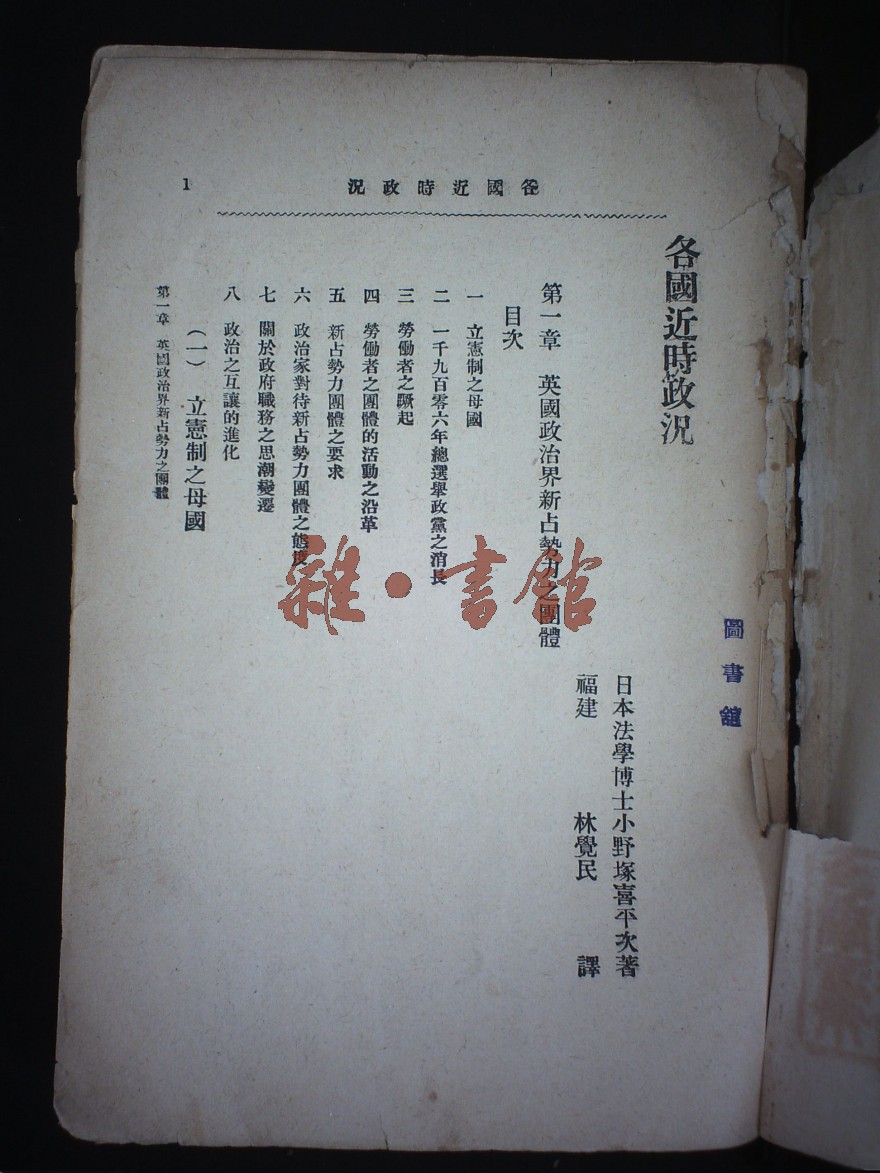 各國近時政況
1
各國近時政況
日本法學博士小野塚喜平次著
福建 林覺民 譯
第一章 英國政治界新占勢力之團體
目次
一 立憲制之母國
二 一千九百零六年總選舉政黨之消長
三 勞働者之蹶起
四 勞働者之團體的活動之沿革
五 新占勢力團體之要求
六 政治家對待新占勢力團體之態度
七 關於政府職務之思潮變遷
八 政治之互讓的進化
(一) 立憲制之母國
第一章 英國政治界新占勢力之團體
圖書館
雜·書館